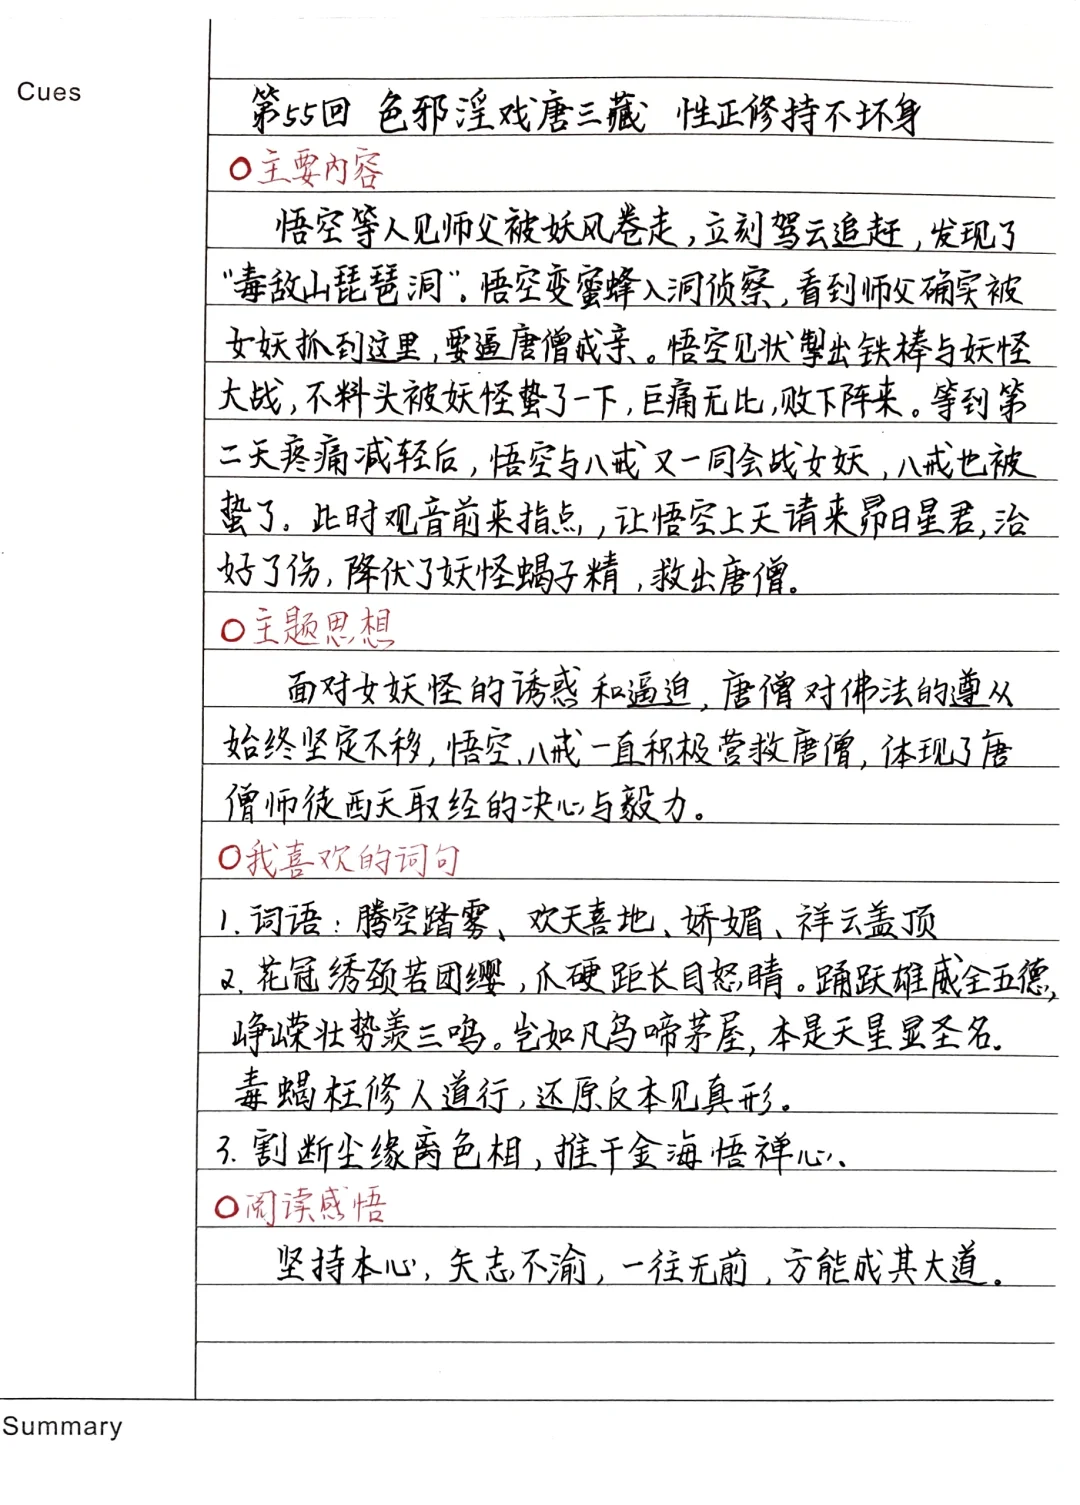 Cues
第55回 色邪淫戏唐三藏 性正修持不坏身
○主要内容
悟空等人见师父被妖风卷走，立刻驾云追赶，发现了
“毒敌山琵琶洞”。悟空变蜜蜂入洞侦察，看到师父确实被
女妖抓到这里，要逼唐僧成亲。悟空见状掣出铁棒与妖怪
大战，不料头被妖怪蛰了一下，巨痛无比，败下阵来。等到第
二天疼痛减轻后，悟空与八戒又一同会战女妖，八戒也被
蛰了。此时观音前来指点，让悟空上天请来昴日星君，治
好了伤，降伏了妖怪蝎子精，救出唐僧。
○主题思想
面对女妖怪的诱惑和逼迫，唐僧对佛法的遵从
始终坚定不移，悟空、八戒一直积极营救唐僧，体现了唐
僧师徒西天取经的决心与毅力。
○我喜欢的词句
1.词语：腾空踏雾、欢天喜地、娇媚、祥云盖顶
2.花冠绣颈若团缨，爪硬距长目怒睛。踊跃雄威全五德，
峥嵘壮势羡三鸣。岂如凡鸟啼茅屋，本是天星显圣名.
毒蝎枉修人道行，还原反本见真形。
3.割断尘缘离色相，推干金海悟禅心、
○阅读感悟
坚持本心，矢志不渝，一往无前，方能成其大道。
Summary